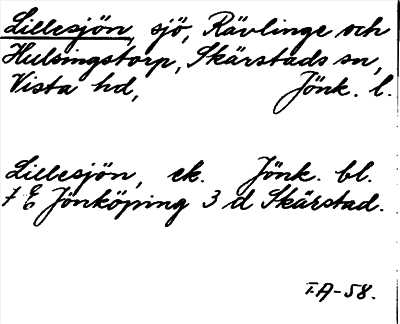 Lillesjön, sjö, Rävlinge och
Hulsingstorp, Skärstads sn,
Vista hd, Jönk. l.
Lillesjön, ek. Jönk. bl.
7 E Jönköping 3 d Skärstad.
IA-58.